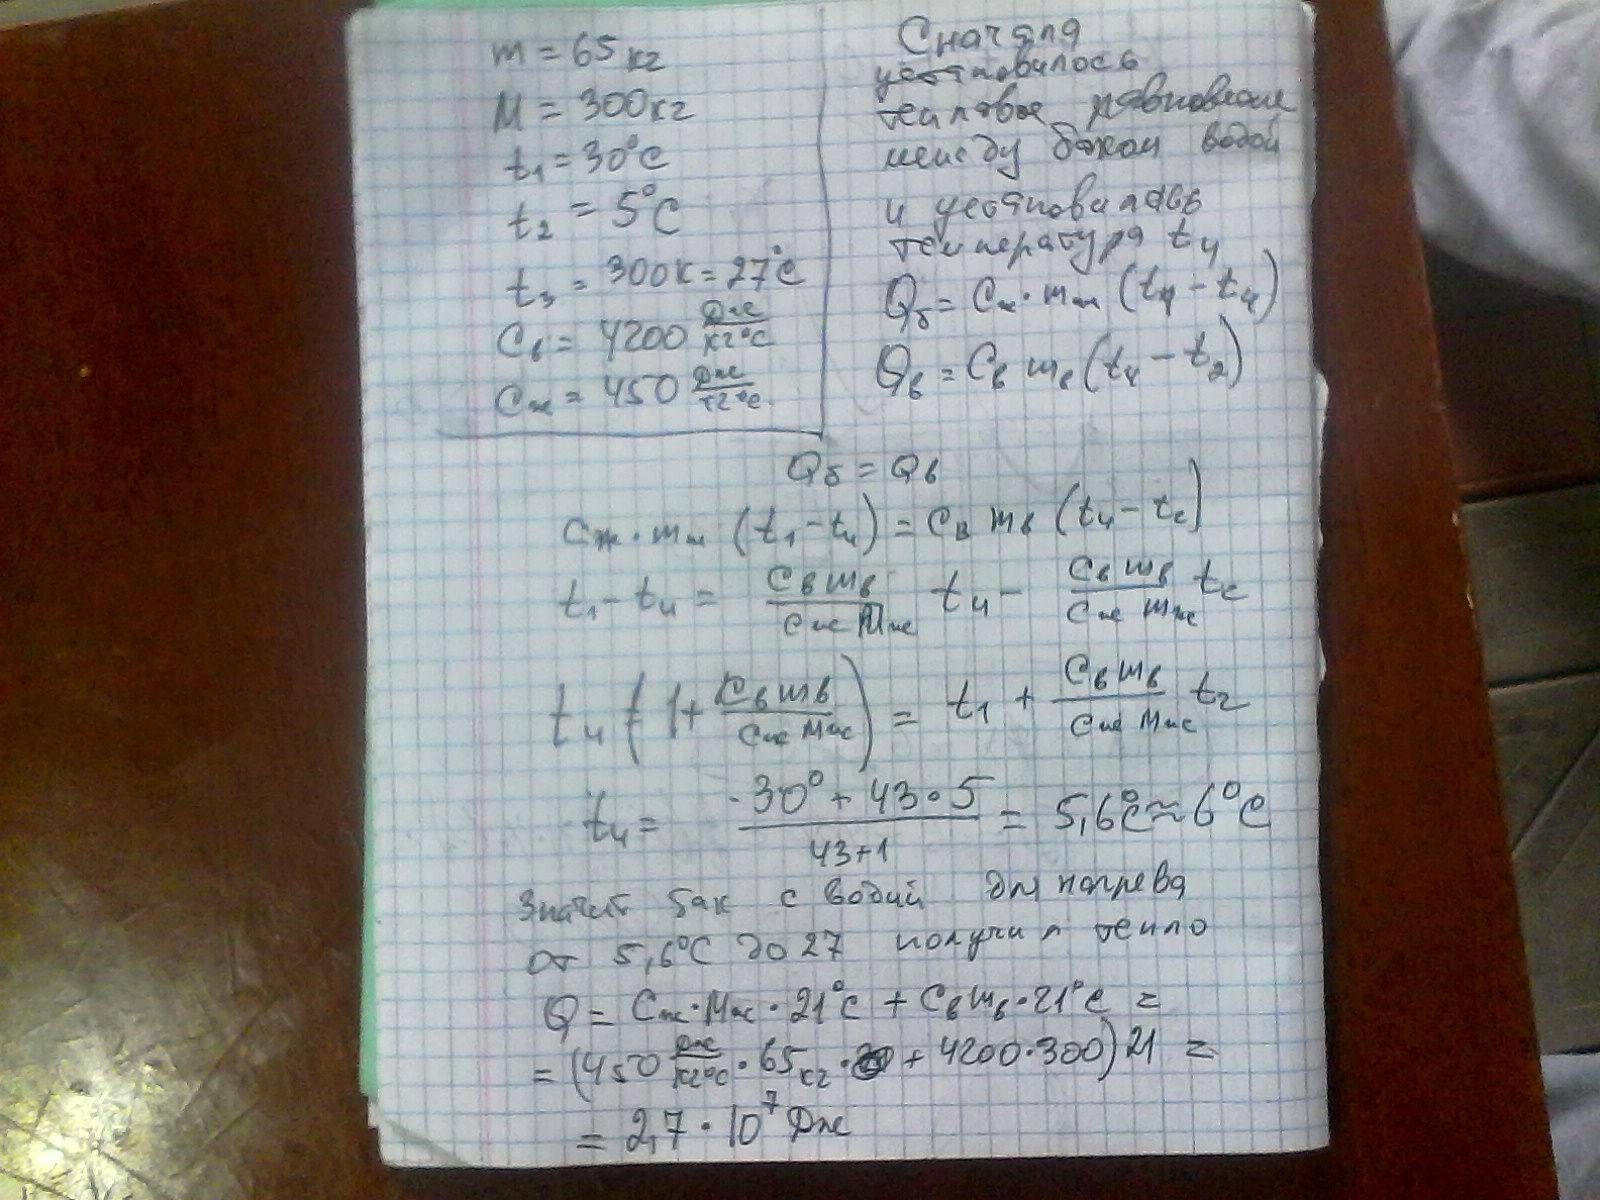 m = 65 кг
M = 300 кг
t₁ = 30°C
t₂ = 5°C
t₃ = 300K = 27°C
Cв = 4200 Дж/кг°C
Cж = 450 Дж/кг°C
Сначала
установилось
тепловое равновесие
между баком водой
и установилась
температура t₄
Qб = Cж·mж (t₁ − t₄)
Qв = Cв mв (t₄ − t₂)
Qб = Qв
Cж·mж (t₁ − t₄) = Cв mв (t₄ − t₂)
t₁ − t₄ = Cв mв / Cж Mж t₄ − Cв mв / Cж mж t₂
t₄ (1 + Cв mв / Cж Mж) = t₁ + Cв mв / Cж Mж t₂
t₄ = 30° + 43·5 / 43+1 = 5,6°C ≈ 6°C
Значит бак с водой для нагрева
от 5,6°C до 27 получил тепло
Q = Cж·Mж·21°C + Cв mв·21°C =
= (450 Дж/кг°C · 65 кг · + 4200·300) 21 =
= 2,7·10⁷ Дж